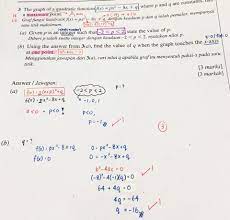 3 The graph of a quadratic function f(x) = px² − 8x + q where p and q are constants,
a maximum point.
Graf fungsi kuadratik f(x) = px² − 8x + q, dengan keadaan p dan q ialah pemalar, mempunyai
satu titik maksimum.
(a) Given p is an integer such that −2 < p < 2, state the value of p.
Diberi p ialah suatu integer dengan keadaan −2 < p < 2, nyatakan nilai p.
(b) Using the answer from 3(a), find the value of q when the graph touches the x-axis
at one point.
Menggunakan jawapan dari 3(a), cari nilai q apabila graf menyentuh paksi-x pada satu
titik.
[3 marks]
[3 markah]
Answer / Jawapan:
(a)
−2 < p < 2
p = ?
f(x) = px² − 8x + q
−1, 0, 1
a < 0
p < 0
p = −1
3
(b) q = ?
f(x) = px² − 8x + q
0 = px² − 8x + q
f(x) = 0
0 = −x² − 8x + q
b² − 4ac = 0
(−8)² − 4(−1)(q) = 0
64 + 4q = 0
4q = −64
q = −16